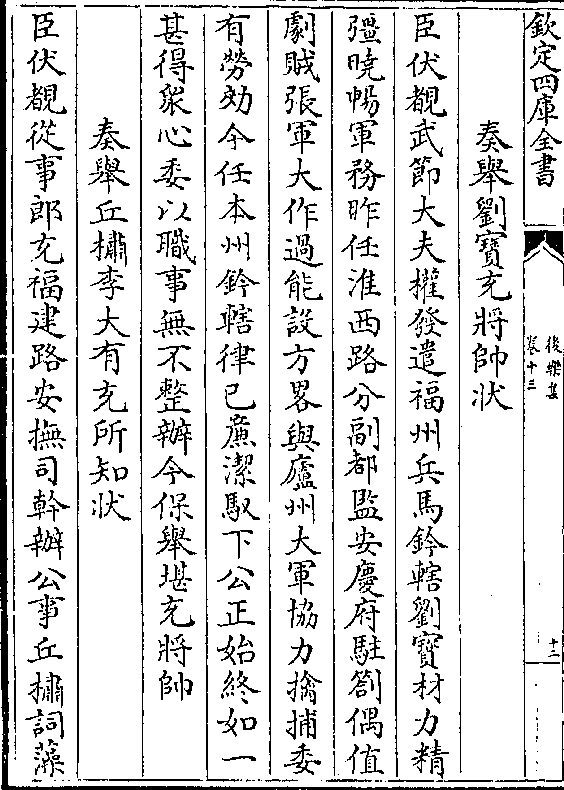 欽定四庫全書
後樂集
卷十三
十二
奏舉劉寶充將帥状
臣伏覩武節大夫權發遣福州兵馬鈐轄劉寶材力精
彊曉暢軍務昨任淮西路分副都監安慶府駐劄偶值
劇賊張軍大作過能設方畧與廬州大軍協力擒捕委
有勞効今任本州鈐轄律已亷潔馭下公正始終如一
甚得衆心委以職事無不整辦今保舉堪充將帥
奏舉丘橚李大有充所知状
臣伏覩從事郎充福建路安撫司幹辦公事丘橚詞藻